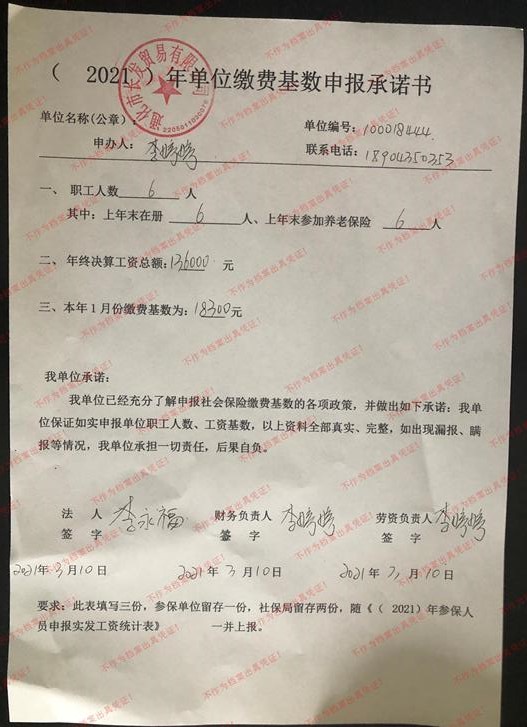 （ 2021 ）年单位缴费基数申报承诺书
通化市长发贸易有限公司
2205011030076
单位名称(公章)： 单位编号：100018444
申办人：李婷婷 联系电话：18904350353
一、 职工人数 6 人
其中：上年末在册 6 人、上年末参加养老保险 6 人
二、 年终决算工资总额：136000 元
三、本年1月份缴费基数为：18300元
我单位承诺：
我单位已经充分了解申报社会保险缴费基数的各项政策，并做出如下承诺：我单
位保证如实申报单位职工人数、工资基数，以上资料全部真实、完整，如出现漏报、瞒
报等情况，我单位承担一切责任，后果自负。
法 人 李永福 财务负责人 李婷婷 劳资负责人 李婷婷
签 字 签 字 签 字
2021年3月10日 2021年3月10日 2021年3月10日
要求：此表填写三份，参保单位留存一份，社保局留存两份，随《（ 2021）年参保人
员申报实发工资统计表》 一并上报。
不作为档案出具凭证！